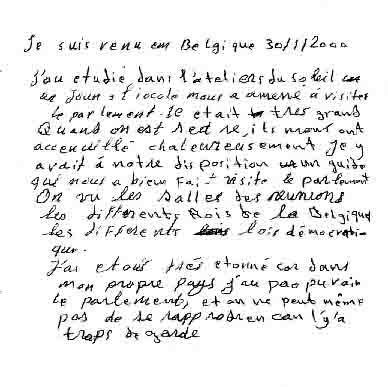 Je suis venu em Belgique 30/1/2000
J'au etudié dans l'ateliers du soleil un
un Jour, l'iocole mous a amené á visiter
le parlement. Ie etait trés grand
Quand on est rest re, ils mous ont
acceuillé chaleureusement Je y
avait á motre disposition un guide
qui mous a bien fait visite le parlement
On vu les salles des reunions
les différents Rois de la Belgique
les différents lois démocrati
que.
J'ai etais trés etonné car dans
mon propre pays j'au pas pu voir
le parlement, et on ne peut même
pas de se rapprocher can l'y'a
traps de garde